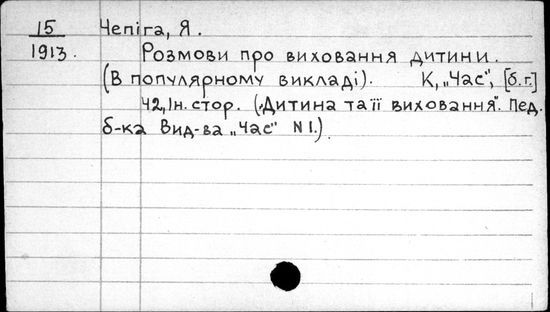 15 Чепіга, Я.
1913. Розмови про виховання дитини.
(В популярному викладі). К, „Час", [б.г.]
42, Iн. стор. („Дитина та її виховання". Пед.
б-ка Вид-ва „Час" N I.)